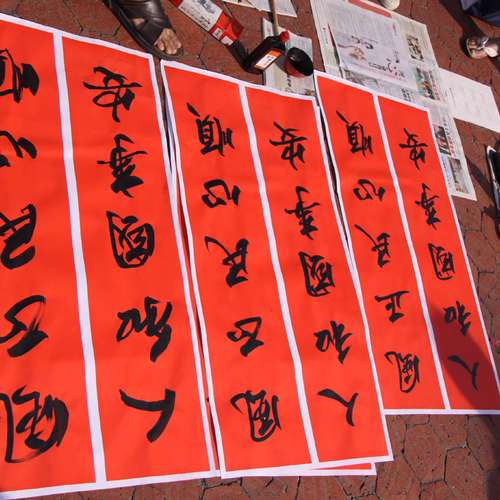 風正民心順
人和國事安
風正民心順
人和國事安
風正民心順
人和國事安